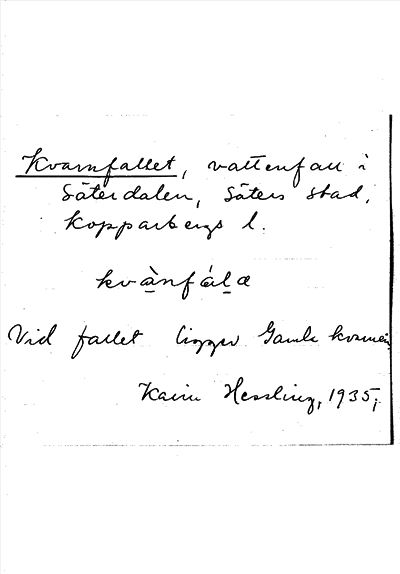 Kvarnfallet, vattenfall i
Säterdalen, Säters stad,
Kopparbergs l.
kvànfála
Vid fallet ligger Gamla kvarnen
Karin Hessling, 1935;